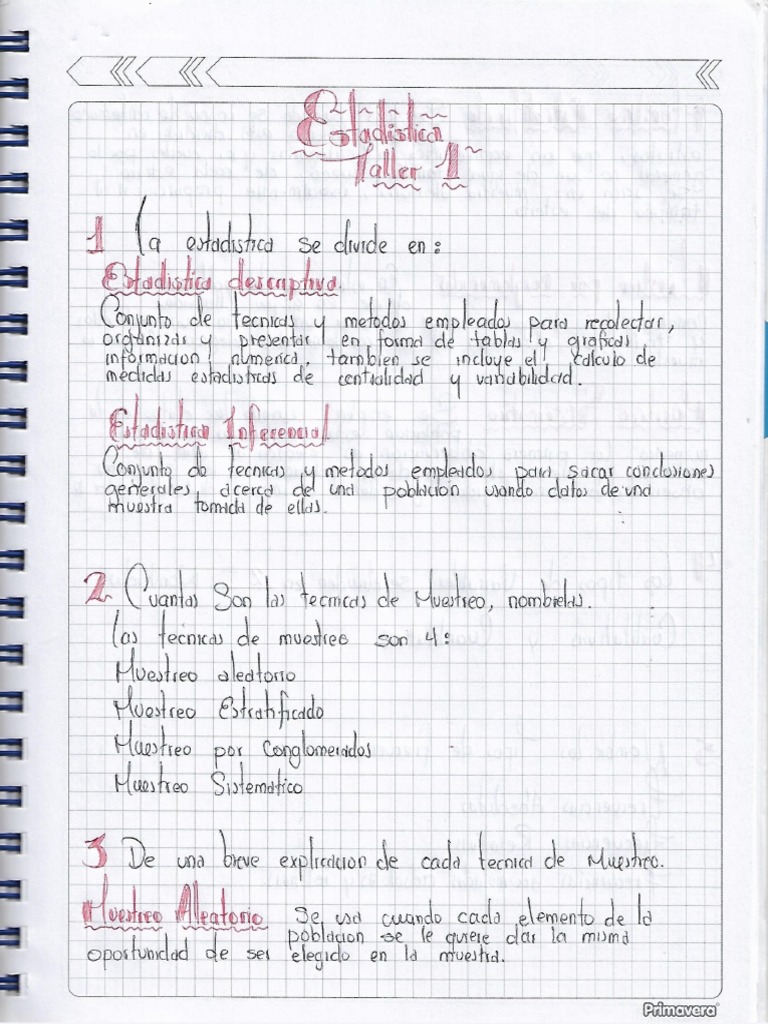 Estadistica
Taller 1
1 La estadistica se divide en:
Estadistica descriptiva.
Conjunto de tecnicas y metodos empleados para recolectar,
organizar y presentar en forma de tablas y graficas,
informacion numerica, tambien se incluye el calculo de
medidas estadisticas de centralidad y variabilidad.
Estadistica Inferencial
Conjunto de tecnicas y metodos empleados para sacar conclusiones
generales, acerca de una población usando datos de una
muestra tomada de ellas.
2 Cuantas Son las tecnicas de Muestreo, nombrelas.
Las tecnicas de muestreo son 4:
Muestreo aleatorio
Muestreo Estratificado
Muestreo por Conglomerados
Muestreo Sistematico
3 De una breve explicacion de cada tecnica de Muestreo.
Muestreo Aleatorio Se usa cuando cada elemento de la
poblacion se le quiere dar la misma
oportunidad de ser elegido en la muestra.
Primavera